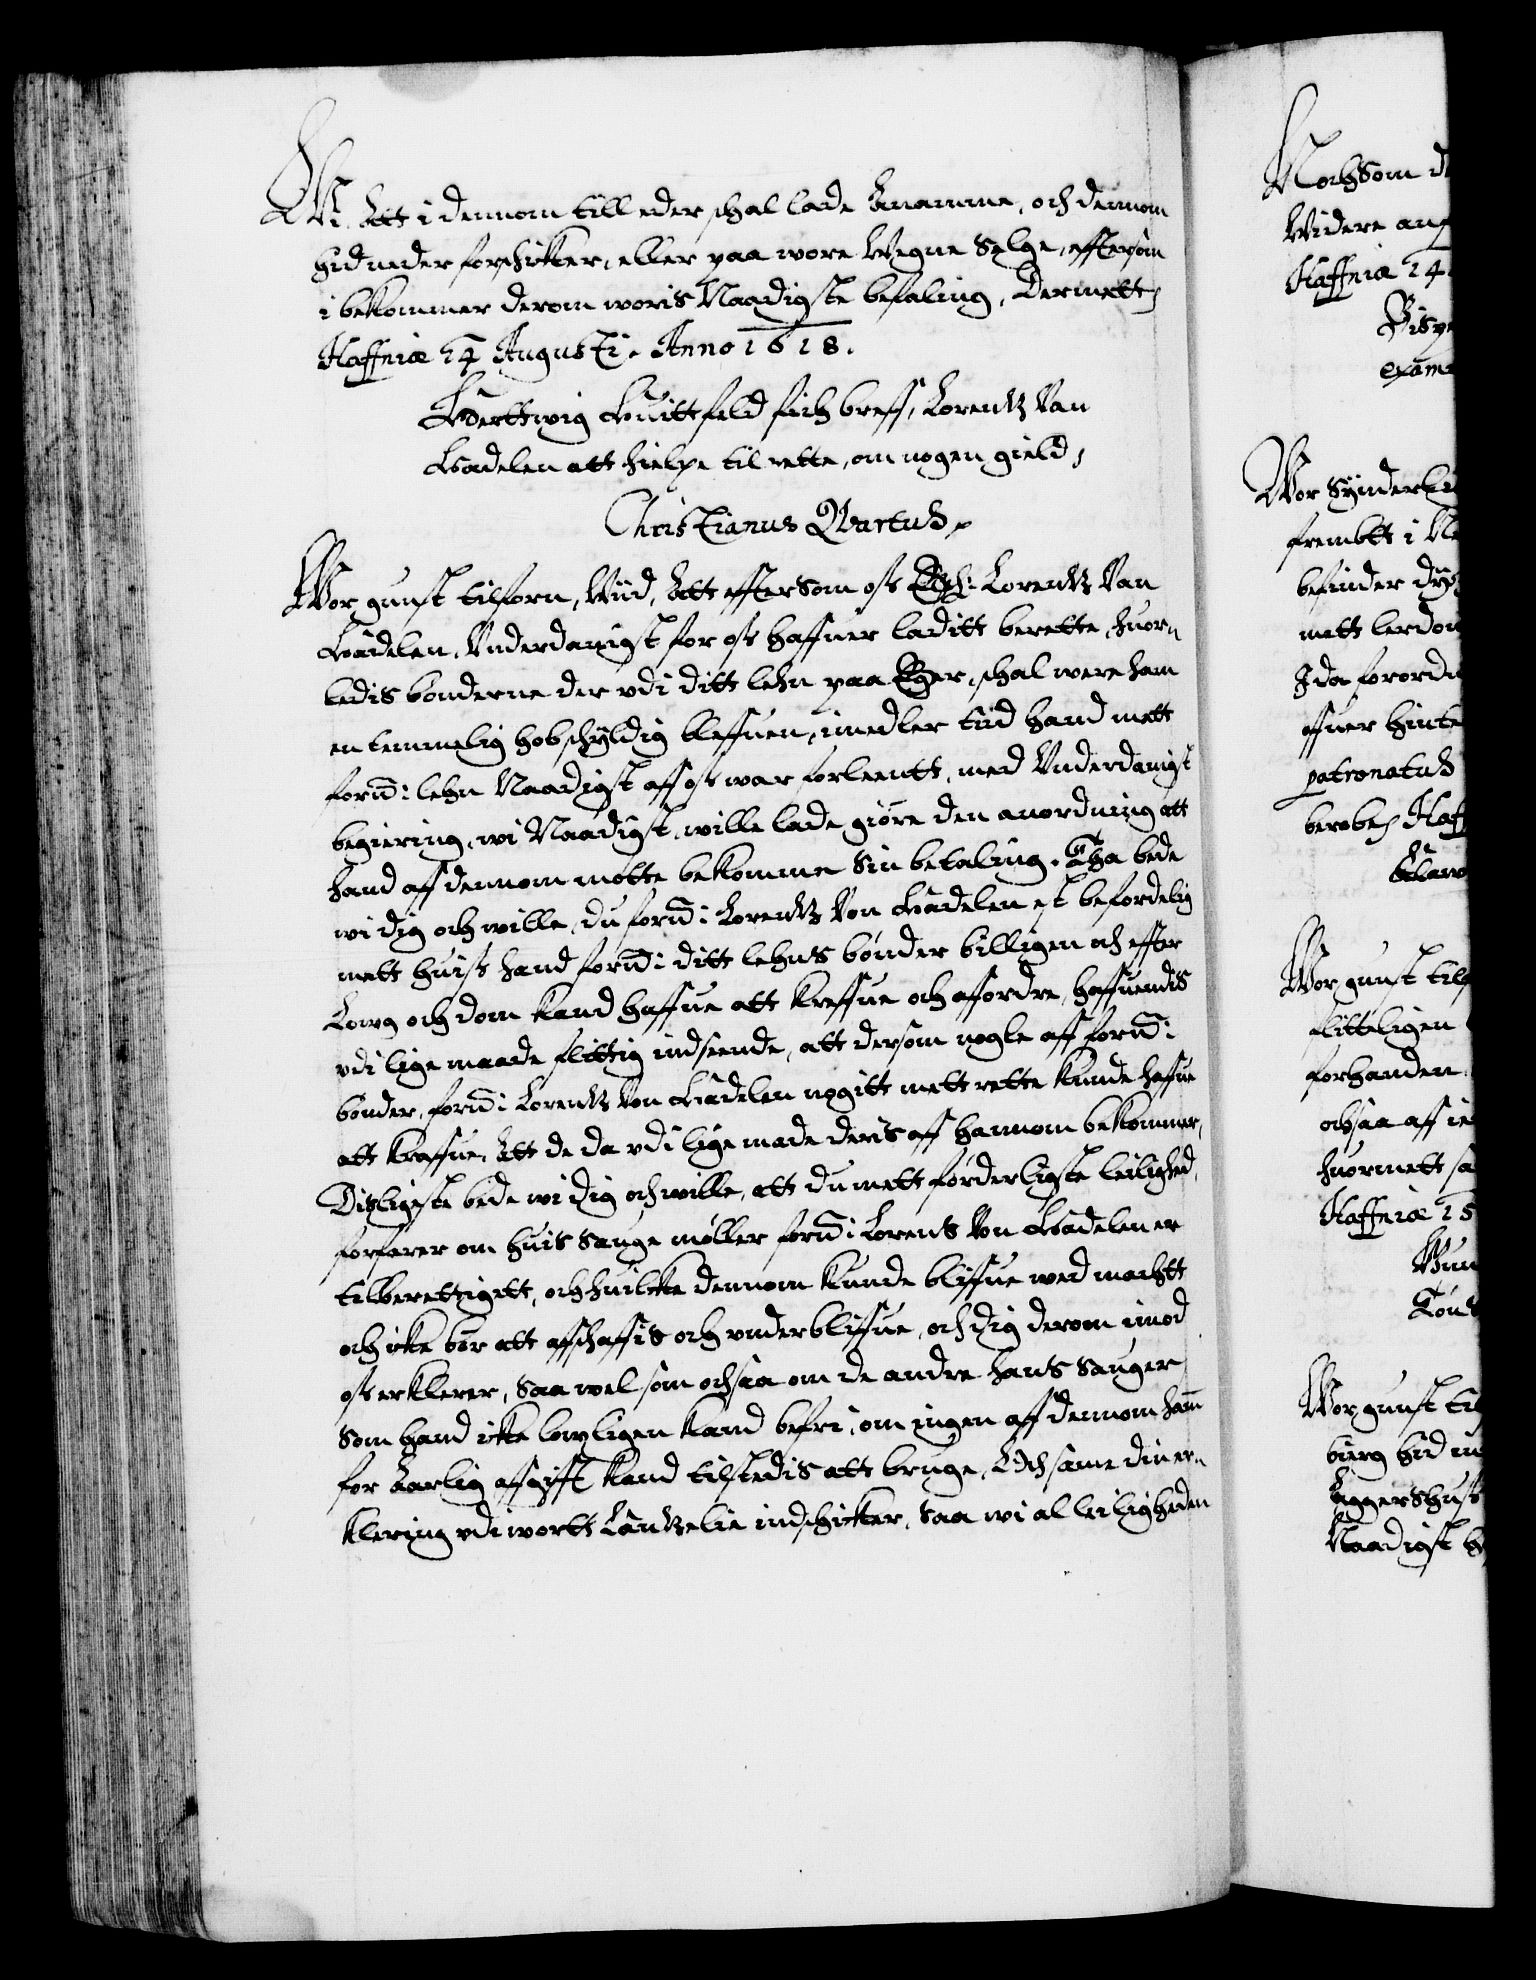 Wi, Att i dennom till eder schal lade Anamme, och dennom
hid neder forschicker, eller paa wore Wegne Selge, effterсom
i bekommer derom woris Naadigste befaling, Dermett
Haffniæ 14 Augusti. Anno 1618.
Herttwig Huittfeld fich breff, Lorentz Van
Hadelen att hielpe til rette, om nogen gield,
Christianus Qvartus
Wor gunst tilforn, Wiid, Att efftersom oss Lorentz Van
Hadelen, Vnderdanigst for oss haffuer laditt berette, huor-
ledis bønderne der vdi ditt lehn paa Eger, schal were ham
en temmelig hob schyldig bleffuen, imedler tiid hand mett
fornd: lehn Naadigst aff oss war forleentt, med Vnderdanigst
begiering, wi Naadigst wille lade giøre den anordning att
hand aff dennom motte bekomme Sin betaling. Tha bede
wi dig och wille, du fornd: Lorentz Von Hadelen est befordelig
mett huiss hand fornd: ditt lehns bønder billigen och effter
Lowg och dom kand haffue att kreffue och affordre, haffuendis
vdi lige maade flittig indseende, att dersom nogle aff fornd:
bønder, fornd: Lorentz Von Hadelen nogitt mett rette kunde haffue
att kraffue, Att de da vdi lige made deris aff hannom bekommer,
Disligeste bede wi dig och wille, att du mett förderligste leilighed,
forfarer om huis Sauge møller fornd: Lorens Von Hadelen er
tilberettigett, och huilcke dennom kunde bliffue wed machtt
och icke bør att affschaffis och vnderbliffue, och dig derom imod
oss erklerer, Saa wel som ochsaa om de andre hans Sauger
Som hand icke lowligen kand befri, om ingen aff dennom ham
for Aarlig affgifft kand tilstedis att bruge, Och same din er-
klering vdi wortt Cantzelie indschicker, Saa wi al leiligheden
Noch Som d
Widere an
Haffniæ 14
Bisp
exam
Wor Synderl
frembtt i N
befinder
mett lerdom
I da forord
offuer hint
patronatus
Haff
Wor gunst til
flitteligen
forhanden
ochsaa aff
huormett sa
Haffniæ 15
Wor gunst til
hid in
Aggershus
Naadigst